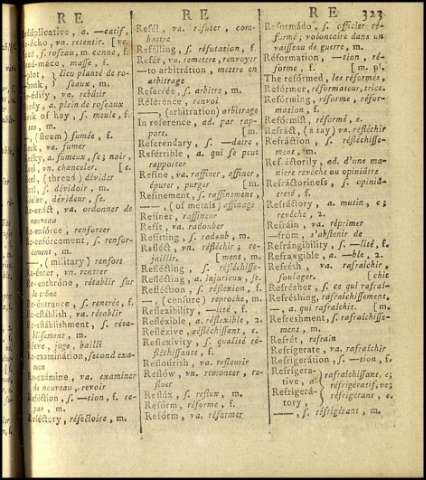 R E
R E
R E
323
Reduplicative, a. —catif.
Reécho, vn. retentir. [ve.
s. roseau, m. canne, f.
masse, f.
lieu planté de roseaux
rebâtir
a. plein de roseaux
of hoy, s. meule, f.
m.
(steum) fumée, f.
va. fumer
a. fumeux, se; noir,
vn. chanceler. [e.
(thread) dévider
s. dévidoir, m.
s. dévideur, se.
va. ordonner de
nouveau
renforcer
Re-enforcement, s. renforcement, m.
—, (military) renfort
Re-enter, vn. rentrer
Re-enthrône, rétablir sur
le trône
Re-entrance, s. rentrée, f.
Re-establish, va. rétablir
Re-establishment, s. rétablissement, m.
juge, bailli
Re-examination, second examen
Re-examine, va. examiner
de nouveau, revoir
Reféction, s. —tion, f. repas, m.
Reféctory, réfectoire, m.
Reféll, va. refuter, combattre
Refélling, s. réfutation, f.
Refér, va. remettre, renvoyer
—to arbitrátion, mettre en
arbitrage
Referrée, s. arbitre, m.
Réference, renvoi
—, (arbitration) arbitrage
In reference, ad. par rapport. [m.
Referendary, s. —daire,
Reférrible, a. qui se peut
rapporter
Refíne, va. raffiner, affiner,
épurer, purger [m.
Refínement, s. raffinement,
—, (of metals) affinage
Refíner, raffineur
Refít, va. radouber
Refítting, s. radoub, m.
Refléct, vn. réfléchir; rejaillir. [ment, m.
Reflécting, s. réfléchisse-
Reflécting, a. injurieux, se.
Refléction, s. réflexion, f.
—, (censure) reproche, m.
Reflexibility, —lité, f.
Refléxible, a. réflexible, 2.
Refléxive, a. réfléchissant, e.
Reflexívity, s. qualité réfléchissante, f.
Reflourish, va. refleurir
Reflów, vn. remonter, refluer
Réflux, s. reflux, m.
Refórm, réforme, f.
Refórm, va. réformer
Reformádo, s. officier réformé; volontaire dans un
vaisseau de guerre, m.
Réformation, —tion, réforme, f. [m. p.
The refórmed, les réformés,
Refórmer, réformateur, trice.
Refórming, réforme, réformation, f.
Refórmist, réformé, e.
Refráct, (a ray) va. réfléchir
Refráction, s. réfléchissement, m.
Refráctorily, ad. d'une maniere revêche ou opiniâtre
Refráctoriness, s. opiniâtreté, f.
Refráctory, a. mutin, e;
revêche, 2.
Refráin, va. réprimer
—from, s'abstenir de
Refrangibility, s. —lité, f.
Refrángible, a. —ble, 2.
Refrésh, va. rafraîchir,
soulager. [chit
Refrésher, s. ce qui rafraî-
Refréshing, rafraîchissement,
—, a. qui rafraîchit. [m.
Refréshment, s. rafraîchissement, m.
Refrét, refrain
Refrígerate, va. rafraîchir
Refrigerátion, s. —tion, f.
Refrígerative, a.
Refrígeratory,
rafraîchissant, e;
réfrigératif, ve;
réfrigérant, e.
—, s. réfrigérant, m.